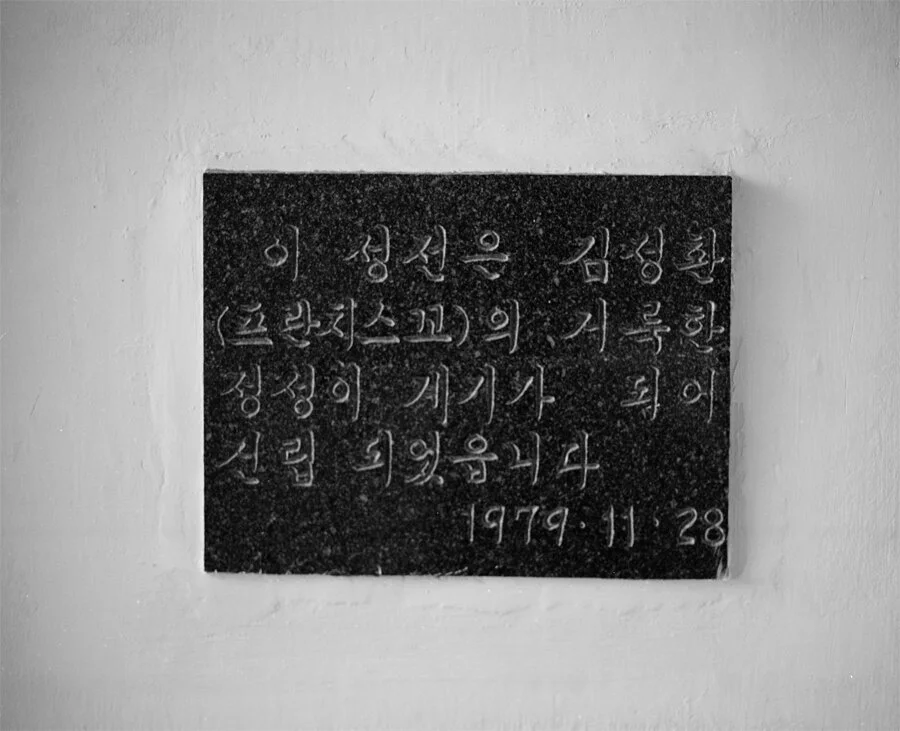 이 성선은 김성환
(프란치스꼬)의 거룩한
성성이 계기가 되어
신립 되었읍니다
1979·11·28